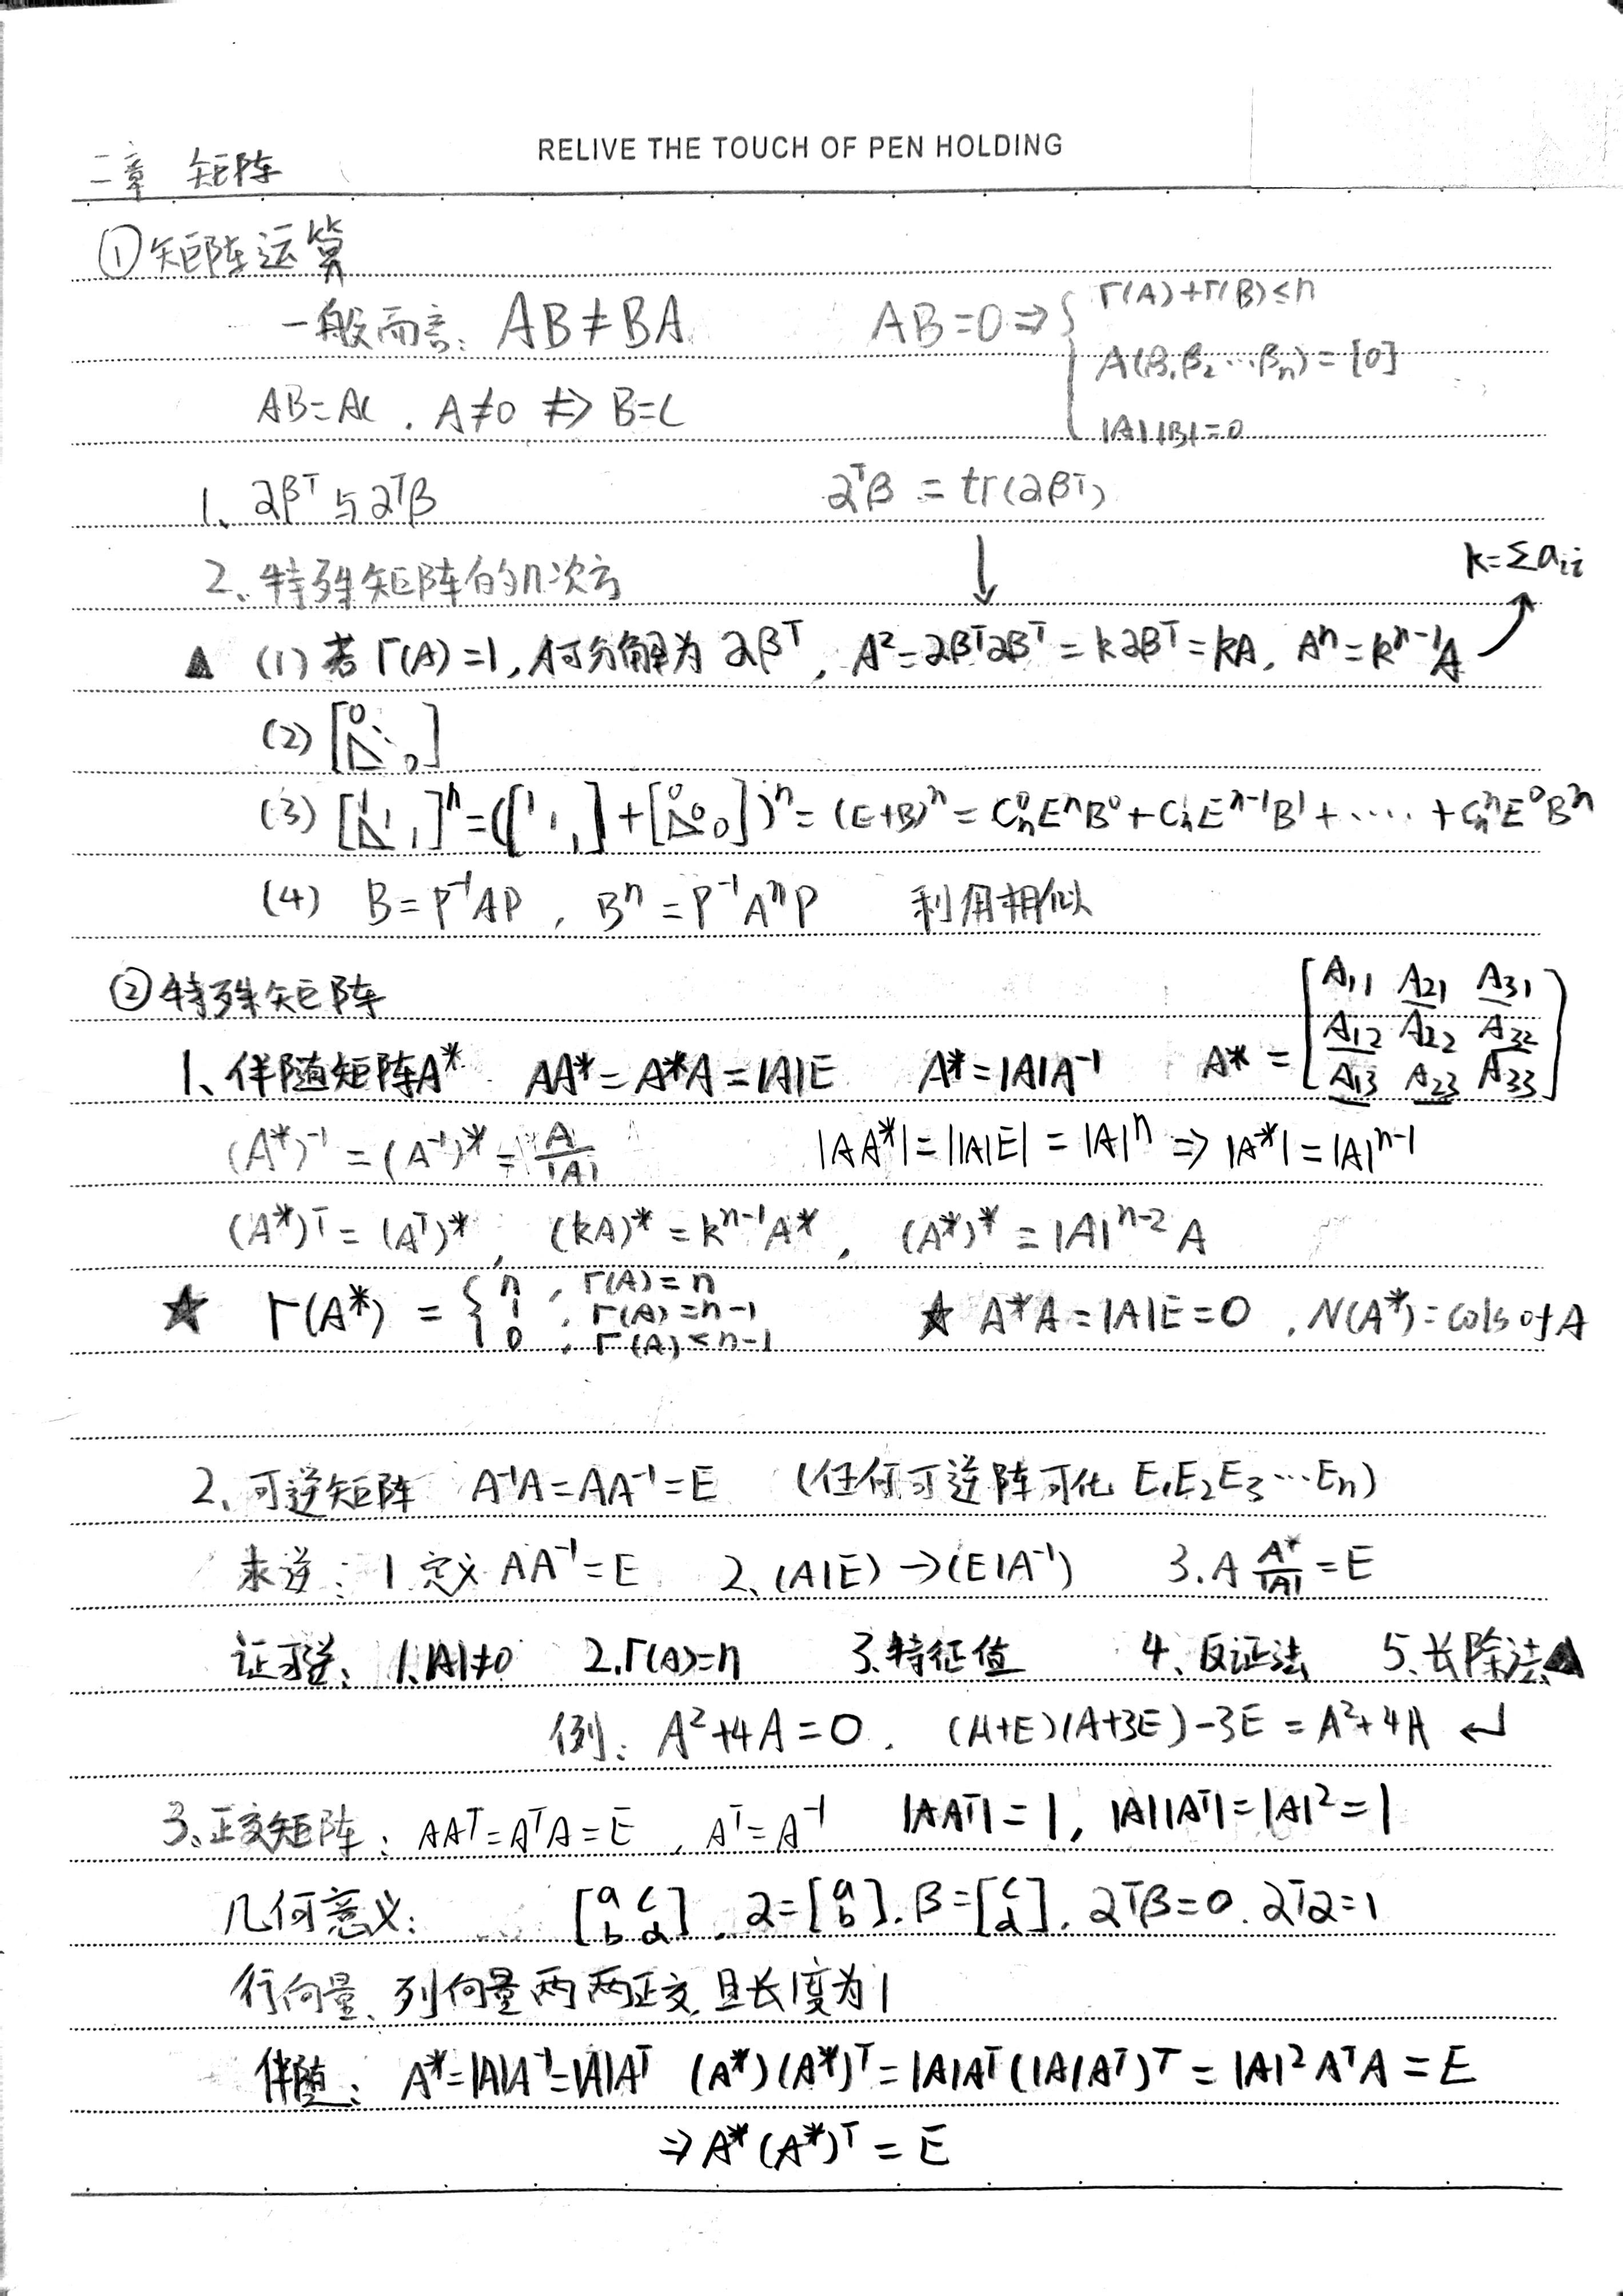 RELIVE THE TOUCH OF PEN HOLDING
二章 矩阵
①矩阵运算
一般而言: AB≠BA    AB=0⇒{ r(A)+r(B)≤n
A(β₁β₂…βn)=[0]
AB=AC . A≠0 ⇏ B=C    |A||B|=0
1、αβᵀ与αᵀβ    αᵀβ = tr(αβᵀ)
2、特殊矩阵的n次方    ↓    k=Σaᵢᵢ
▲ (1) 若 r(A)=1, A可分解为 αβᵀ, A²=αβᵀαβᵀ=kαβᵀ=kA, Aⁿ=kⁿ⁻¹A
(2) [0⋱0]
(3) [1 1 1]ⁿ=([1 1 1]+[0 0 0])ⁿ=(E+B)ⁿ=Cₙ⁰EⁿB⁰+Cₙ¹Eⁿ⁻¹B¹+……+CₙⁿE⁰Bⁿ
(4) B=P⁻¹AP, Bⁿ=P⁻¹AⁿP    利用相似
②特殊矩阵
1、伴随矩阵A*    AA*=A*A=|A|E    A*=|A|A⁻¹    A*=[A₁₁ A₂₁ A₃₁
A₁₂ A₂₂ A₃₂
A₁₃ A₂₃ A₃₃]
(A*)⁻¹=(A⁻¹)*=A/|A|    |AA*|=||A|E|=|A|ⁿ⇒|A*|=|A|ⁿ⁻¹
(A*)ᵀ=(Aᵀ)*, (kA)*=kⁿ⁻¹A*, (A*)*=|A|ⁿ⁻²A
★ r(A*)={ n, r(A)=n
1, r(A)=n-1
0, r(A)<n-1
★ A*A=|A|E=0 , N(A*)=cols of A
2、可逆矩阵    A⁻¹A=AA⁻¹=E    (任何可逆阵可化 E₁E₂E₃…En)
求逆: 1.定义 AA⁻¹=E    2、(A|E)→(E|A⁻¹)    3.A A*/|A|=E
证可逆: 1.|A|≠0    2.r(A)=n    3.特征值    4、反证法    5、长除法▲
例: A²+4A=0.    (A+E)(A+3E)-3E=A²+4A ↵
3、正交矩阵: AAᵀ=AᵀA=E, Aᵀ=A⁻¹    |AAᵀ|=1, |A||Aᵀ|=|A|²=1
几何意义:    [a c
b d], α=[a
b], β=[c
d], αᵀβ=0. αᵀα=1
行向量、列向量两两正交,且长度为1
伴随: A*=|A|A⁻¹=|A|Aᵀ    (A*)(A*)ᵀ=|A|Aᵀ(|A|Aᵀ)ᵀ=|A|²AᵀA=E
⇒A*(A*)ᵀ=E